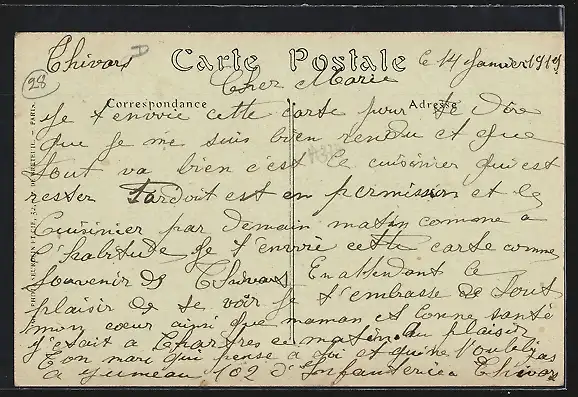 Thivars
28
Carte Postale
le 14 Janvier 1915
Cher Marie
Correspondance
Adresse
Je t'envoie cette carte pour te dire
que je me suis bien rendu et que
tout va bien c'est le cuisinier qui est
rester Tardoit est en permission et le
Cuisinier par demain matin comme a
l'habitude Je t'envoie cette carte comme
souvenir de Thivars En attendant le
plaisir de te voir Je t'embrasse de tout
mon cœur ainsi que maman et bonne santé
j'etait a Chartres ce matin Au plaisir
Ton mari qui pense a toi et qui ne t'oubli pas
A Jumeau 102 d'Infanterie a Thivars